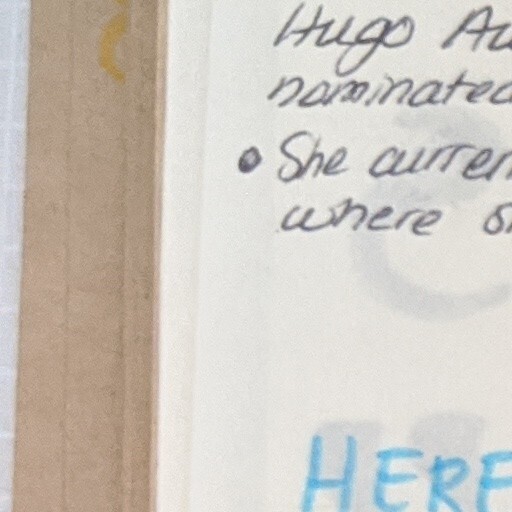 Hugo Au
nominated
• She curren
where sh
HERE